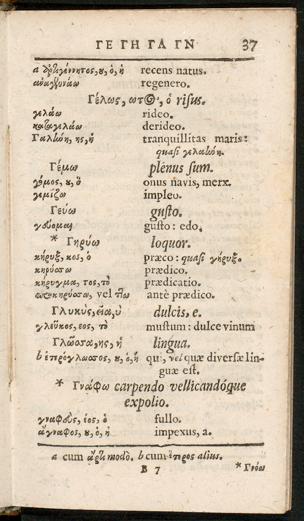 ΓΕ ΓΗ ΓΛ ΓΝ 37
a ἀρτιγέννητος, ου, ὁ, ἡ recens natus.
ἀναγεννάω regenero.
Γέλως, ωτος, ὁ risus.
γελάω rideo.
καταγελάω derideo.
Γαλήνη, ης, ἡ tranquillitas maris:
quasi γελήνη.
Γέμω plenus sum.
γόμος, ου, ὁ onus navis, merx.
γεμίζω impleo.
Γεύω gusto.
γεύομαι gusto: edo.
* Γηρύω loquor.
κήρυξ, κος, ὁ præco: quasi γήρυξ.
κηρύσσω prædico.
κήρυγμα, τος, τὸ prædicatio.
προκηρύσσω, vel ττω antè prædico.
Γλυκὺς, εῖα, ὺ dulcis, e.
γλεῦκος, εος, τὸ mustum: dulce vinum
Γλῶσσα, ης, ἡ lingua.
b ἑτερόγλωσσος, ου, ὁ, ἡ qui, vel quæ diversæ lin-
guæ est.
* Γνάφω carpendo vellicandóque
expolio.
γναφεὺς, έος, ὁ fullo.
ἄγναφος, ου, ὁ, ἡ impexus, a.
a cum ἄρτι modò. b cum ἕτερος alius.
B 7 * Γνόω